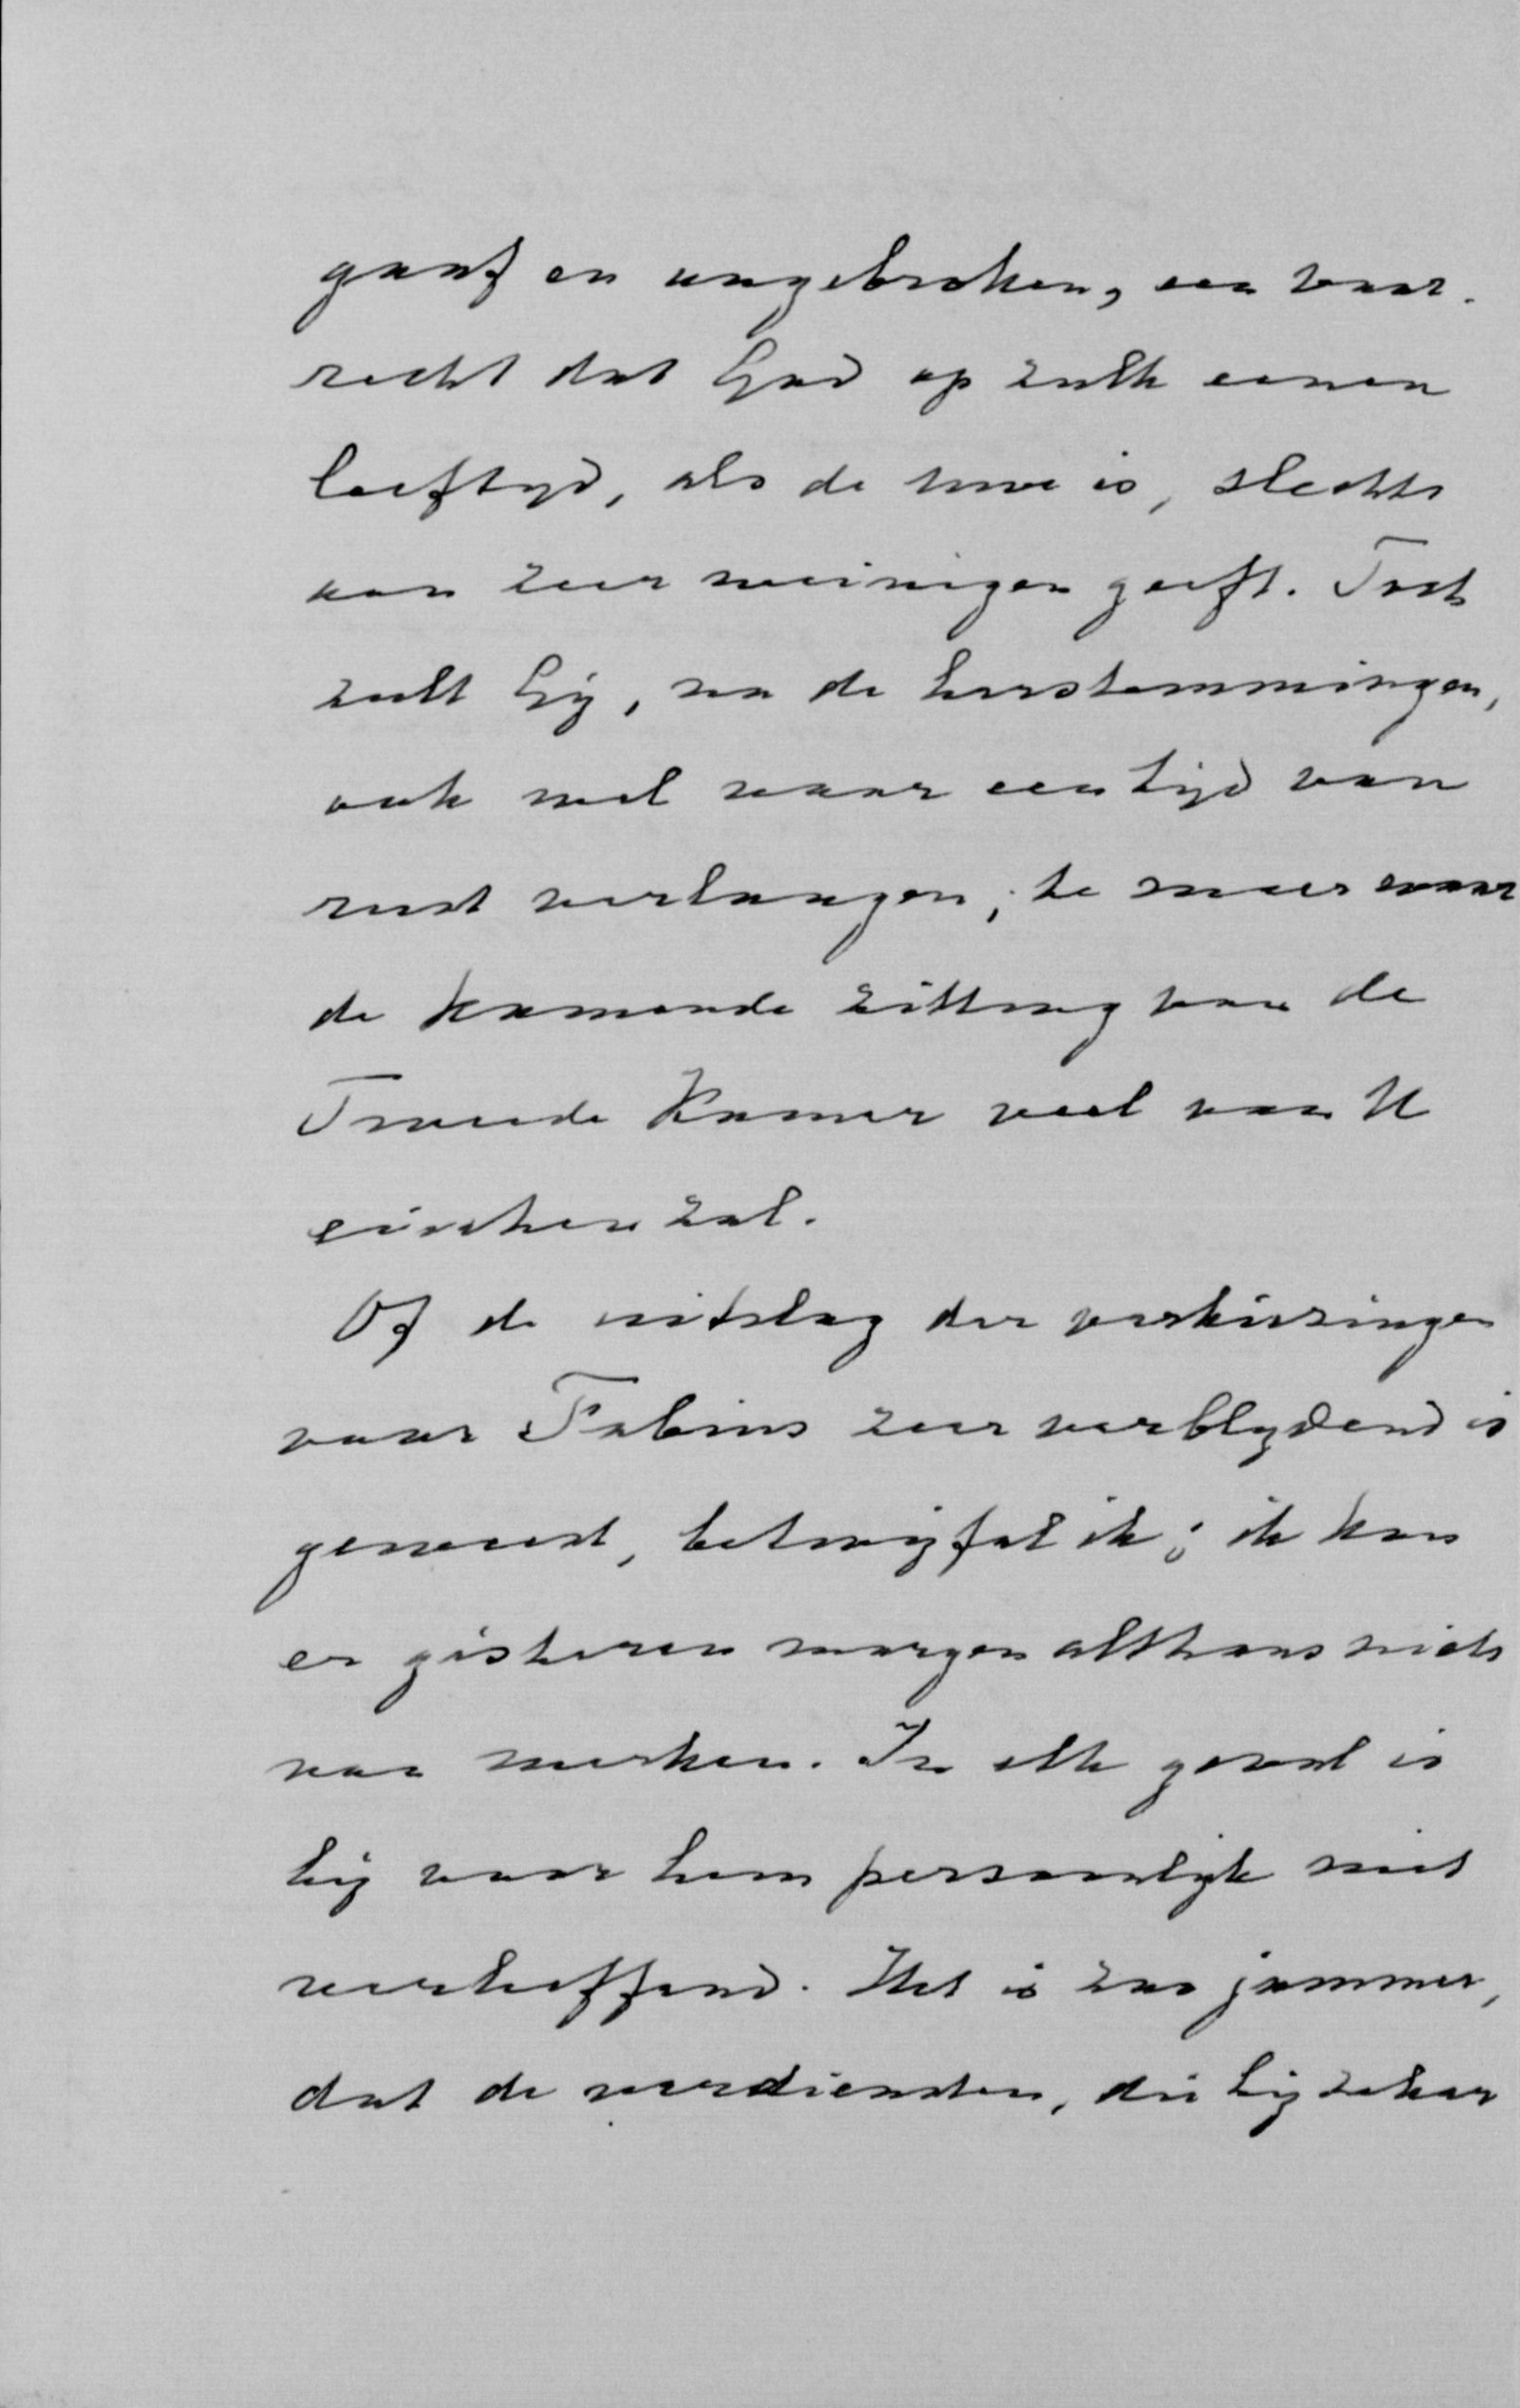 gaaf en ongebroken, een voor-
recht dat God op zulk eenen
leeftyd, als de uwe is, slechts
aan zeer weinigen geeft. Toch
zult Gij, na de herstemmingen,
ook wel naar een tijd van
rust verlangen; te meer waar
de komende zitting van de
Tweede Kamer veel van U
eischen zal.
Of de uitslag der verkiezingen
voor Fabius zeer verblydend is
geweest, betwijfel ik; ik kon
er gisteren morgen althans niets
van merken. In elk geval is
hij voor hem persoonlyk niet
verheffend. Het is zoo jammer,
dat de verdiensten, die hij zeker